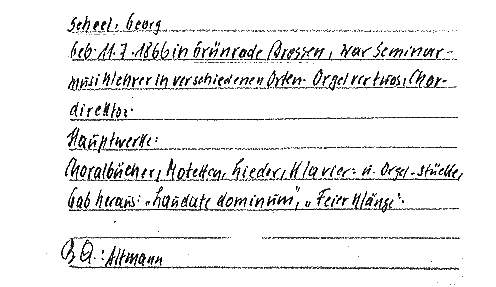 Scheel, Georg
Geb. 11.7.1866 in Grünrade Drossen, War Seminar-
musiklehrer in verschiedenen Orten. Orgelvertuos, Chor-
direktor.
Hauptwerke:
Choralbücher, Motetten, Lieder, Klavier- u. Orgel-stücke,
Gab heraus: "Laudate dominum", "Feier Klänge".
B Q.: Altmann